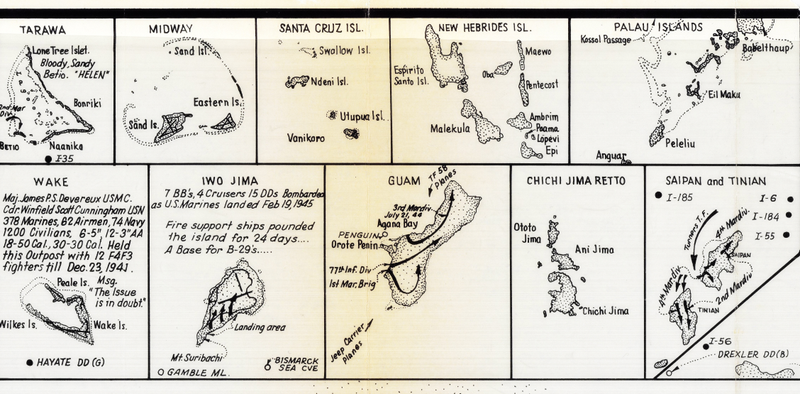 TARAWA
Lone Tree Islet.
Bloody, Sandy
Betio. "HELEN"
2nd Mar
Div
Bonriki
BETIO
Naanika
I-35
MIDWAY
Sand Isl.
Eastern Is.
Sand Is.
SANTA CRUZ ISL.
Swallow Isl.
Ndeni Isl.
Utupua Isl.
Vanikoro
NEW HEBRIDES ISL.
Maewo
Espirito
Santo Isl.
Oba
Pentecost
Malekula
Ambrim
Paama
Lopevi
Epi
PALAU ISLANDS
Kossol Passage
Babelthaup
Eil Maku
Peleliu
Anguar
WAKE
Maj. James P.S. Devereux U.S.M.C.
Cdr Winfield Scott Cunningham USN
378 Marines, 82 Airmen, 74 Navy
1200 Civilians, 6-5", 12-3"AA
18-50 Cal., 30-30 Cal. Held
this Outpost with 12 F4F3
fighters till Dec. 23, 1941.
Peale Is.
Msg.
"The Issue
is in doubt."
Wilkes Is.
Wake Is.
HAYATE DD (G)
IWO JIMA
7 BB's, 4 Cruisers 15 DDs Bombarded
as U.S. Marines landed Feb 19, 1945
Fire support ships pounded
the island for 24 days...
A Base for B-29's....
Landing area
Mt. Suribachi
GAMBLE ML.
BISMARCK
SEA CVE
GUAM
TF 58
Planes
3rd Mardiv.
July 21, 44
Agana Bay
PENGUIN
Orote Penin.
77th Inf. Div
1st Mar. Brig
Jeep Carrier
Planes
CHICHI JIMA RETTO
Ototo
Jima
Ani Jima
Chichi Jima
SAIPAN and TINIAN
I-185
I-6
I-184
I-55
Turners T.F.
4th Mardiv.
SAIPAN
4th Mardiv.
2nd Mardiv
TINIAN
I-56
DREXLER DD (B)